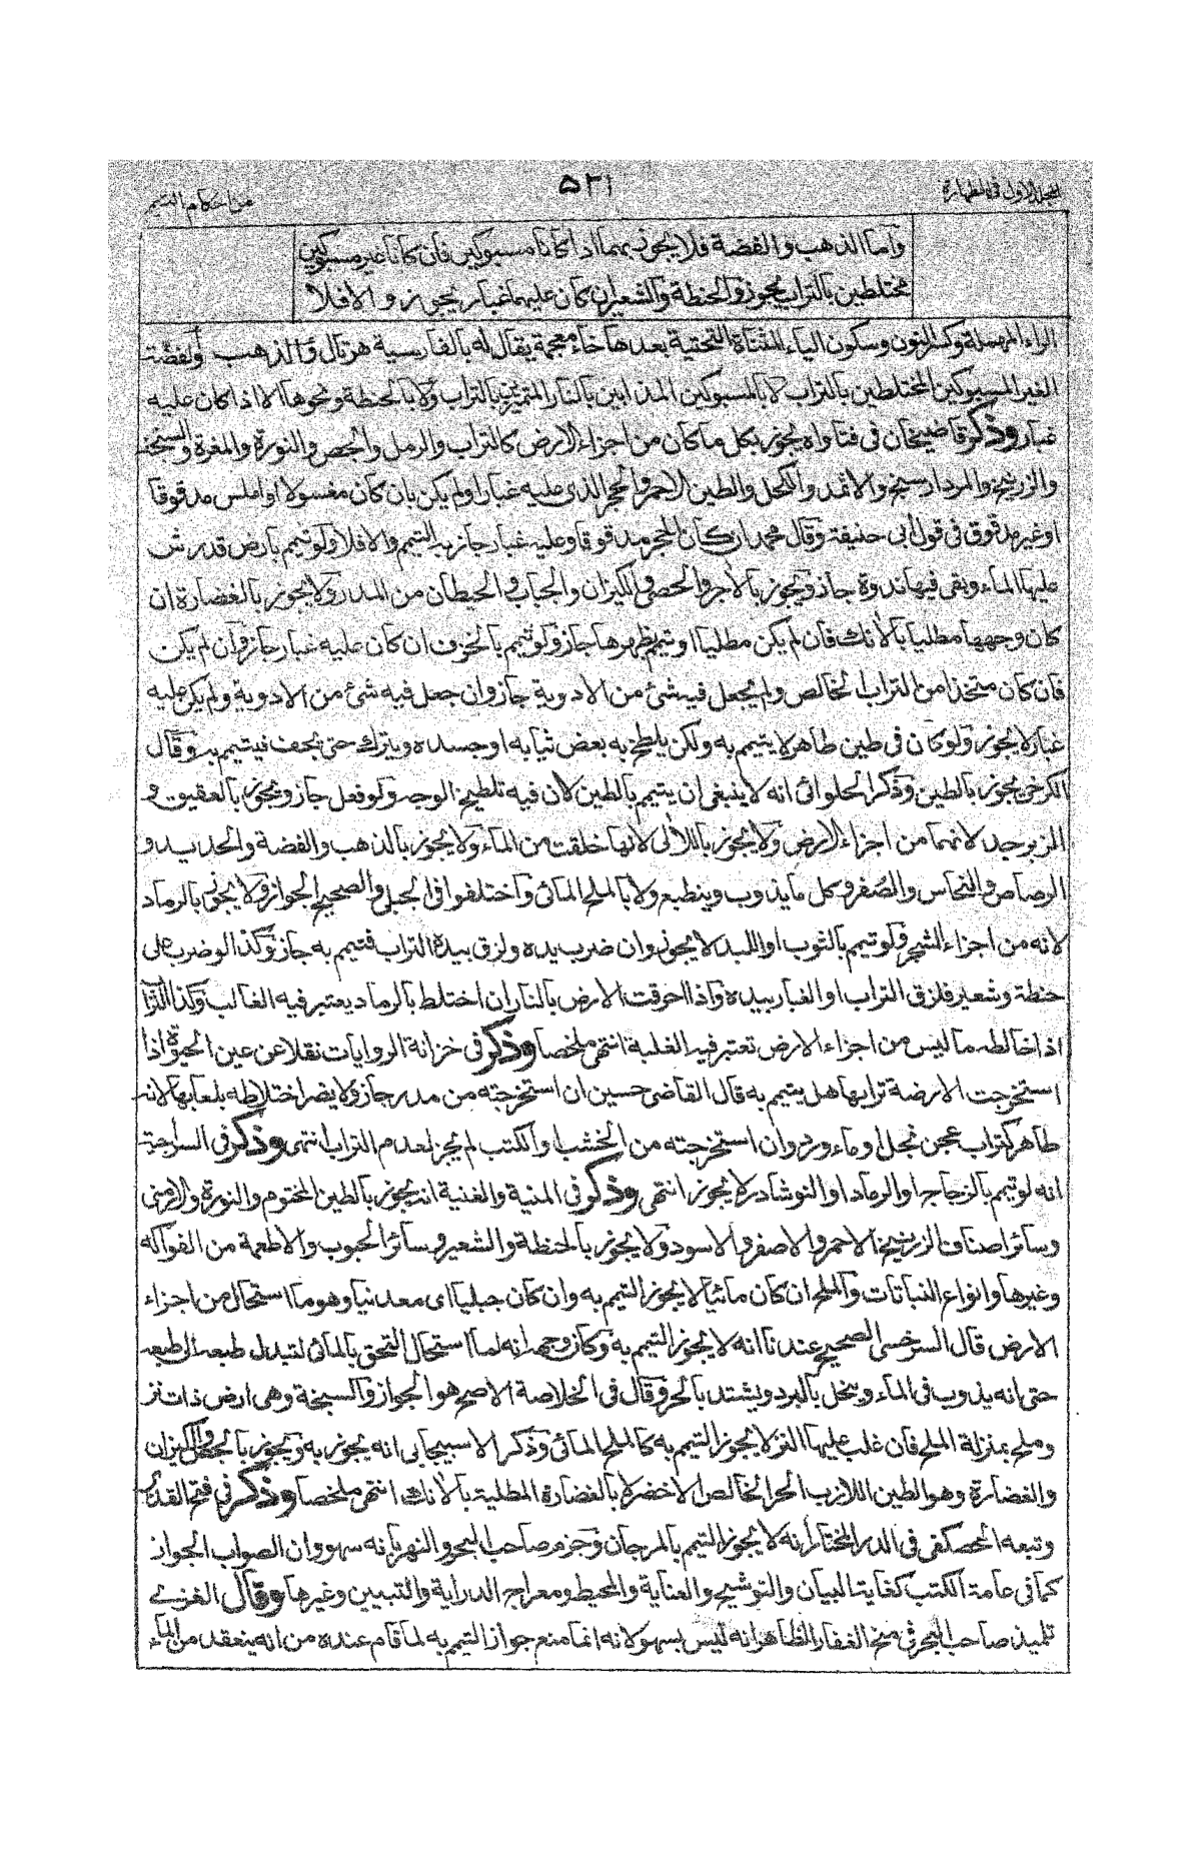 المجلد الاول في الطهارة
۵۲۱
من احكام التيمم
وآما الذهب والفضة فلا يجوز بهما اذا كانا مسبوكين فان كانا غير مسبوكين
مختلطين بالتراب يجوز والحنطة والشعير ان كان عليهما غبار يجوز والا فلا
الراء المهملة وكسر النون وسكون الياء المثناة التحتية بعدها خاء معجمة يقال له بالفارسية هرتال والذهب والفضة
الغير المسبوكين المختلطين بالتراب لا بالمسبوكين المذابين بالنار المتميزين بالتراب ولا بالحنطة ونحوها الا اذا كان عليه
غبار وذكر قاضيخان في فتاواه يجوز بكل ما كان من اجزاء الارض كالتراب والرمل والجص والنورة والمغرة والسبخة
والزرنيخ والمردارسنج والاثمد والكحل والطين الاحمر والحجر الذي عليه غبار اولم يكن بان كان مغسولا او املس مدقوقا
اوغير مدقوق في قول ابى حنيفة وقال محمد ان كان الحجر مدقوقا وعليه غبار جاز به التيمم والا فلا ولو تيمم بارض قد رش
عليها الماء وبقى فيها ندوة جاز ويجوز بالآجر والحصى والكيزان والجباب والحيطان من المدر ولا يجوز بالغضارة ان
كان وجهها مطليا بالآنك فان لم يكن مطليا او تيمم بظهرها جاز ولو تيمم بالخزف ان كان عليه غبار جاز وان لم يكن
فان كان متخذا من التراب الخالص ولم يجعل فيه شئ من الادوية جاز وان جعل فيه شئ من الادوية ولم يكن عليه
غبار لا يجوز ولو كان في طين طاهر لا يتيمم به ولكن يلطخ به بعض ثيابه اوجسده ويتركه حتى يجف فيتيمم به وقال
الكرخى يجوز بالطين وذكر الحلوائى انه لا ينبغى ان يتيمم بالطين لان فيه تلطيخ الوجه ولو فعل جاز ويجوز بالعقيق و
الزبرجد لانهما من اجزاء الارض ولا يجوز باللآلى لانها خلقت من الماء ولا يجوز بالذهب والفضة والحديد و
الرصاص والنحاس والصفر وكل ما يذوب وينطبع ولا بالملح المائى واختلفوا في الجبلى والصحيح الجواز ولا يجوز بالرماد
لانه من اجزاء الشجر ولو تيمم بالثوب او اللبد لا يجوز وان ضرب يده ولزق بيده التراب فتيمم به جاز وكذا لو ضرب على
حنطة وشعير فلزق التراب او الغبار بيده واذا احرقت الارض بالنار ان اختلط بالرماد يعتبر فيه الغالب وكذا التراب
اذا خالطه ما ليس من اجزاء الارض تعتبر فيه الغلبة انتهى ملخصا وذكر في خزانة الروايات نقلا عن عين الحيوة اذا
استخرجت الارضة ترابها هل يتيمم به قال القاضى حسين ان استخرجته من مدر جاز ولا يضر اختلاطه بلعابها لانه
طاهر كتراب عجن بخل او ماء ورد وان استخرجته من الخشب او الكتب لم يجز لعدم التراب انتهى وذكر في السراجية
انه لو تيمم بالزجاج او الرماد او النوشادر لا يجوز انتهى وذكر في المنية والغنية انه يجوز بالطين المختوم والنورة والارمنى
وسائر اصناف الزرنيخ الاحمر والاصفر والاسود ولا يجوز بالحنطة والشعير وسائر الحبوب والاطعمة من الفواكه
وغيرها وانواع النباتات والملح ان كان مائيا لا يجوز التيمم به وان كان جبليا اى معدنيا وهو ما استحال من اجزاء
الارض قال السرخسى الصحيح عندنا انه لا يجوز التيمم به وكان وجهه انه لما استحال التحق بالمائى لتبدل طبعه الى طبعه
حتى انه يذوب في الماء وينحل بالبرد ويشتد بالحر وقال في الخلاصة الاصح هو الجواز والسبخة وهى ارض ذات نز
وملح بمنزلة الملح فان غلب عليها النز لا يجوز التيمم به كالملح المائى وذكر الاسبيجابى انه يجوز به ويجوز بالحجر والكيزان
والغضارة وهو الطين اللازب الحر الخالص الاخضر لا بالغضارة المطلية بالآنك انتهى ملخصا وذكر في فتح القدير
وتبعه الحصكفى في الدر المختار انه لا يجوز التيمم بالمرجان وجزم صاحب البحر والنهر بانه سهو وان الصواب الجواز
كما في عامة الكتب كغاية البيان والتوشيح والعناية والمحيط ومعراج الدراية والتبيين وغيرها وقال الغزى
تلميذ صاحب البحر في منح الغفار الظاهر انه ليس بسهو لانه انما منع جواز التيمم به لما قام عنده من انه ينعقد من الماء